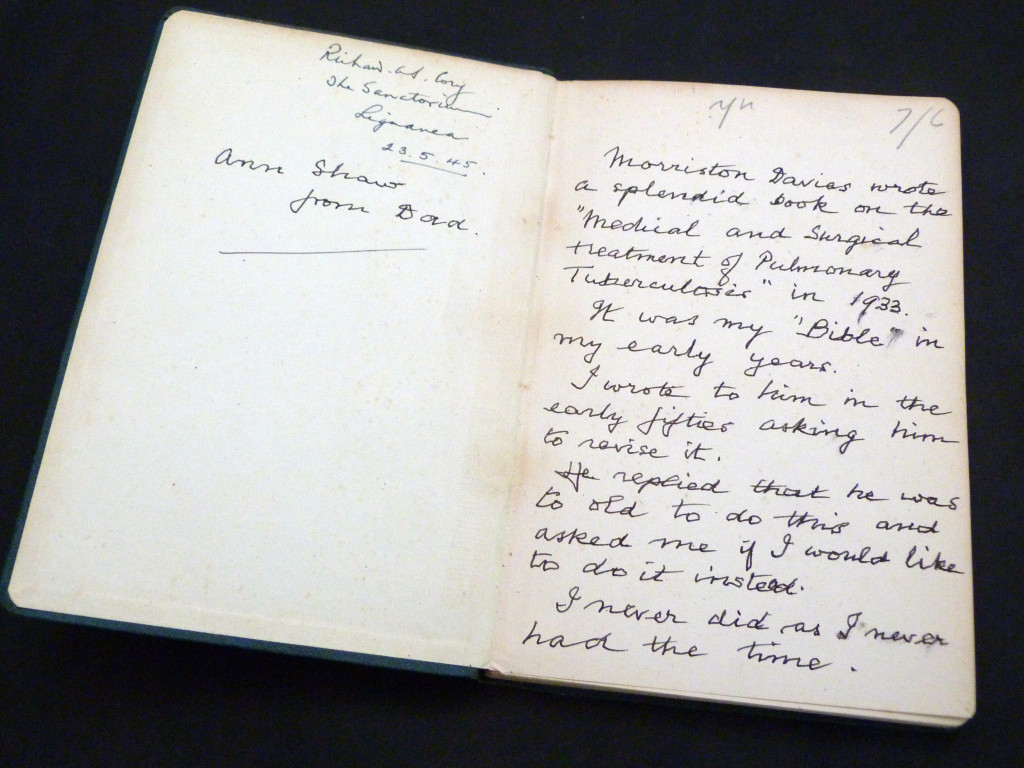 Richard. A.S. Cory
The Sanatorium
Liguanea
23.5.45.
Ann Shaw
from Dad.
7/6
Morriston Davies wrote
a splendid book on the
"Medical and Surgical
treatment of Pulmonary
Tuberculosis" in 1933.
It was my "Bible" in
my early years.
I wrote to him in the
early fifties asking him
to revise it.
He replied that he was
to old to do this and
asked me if I would like
to do it insted.
I never did as I never
had the time.